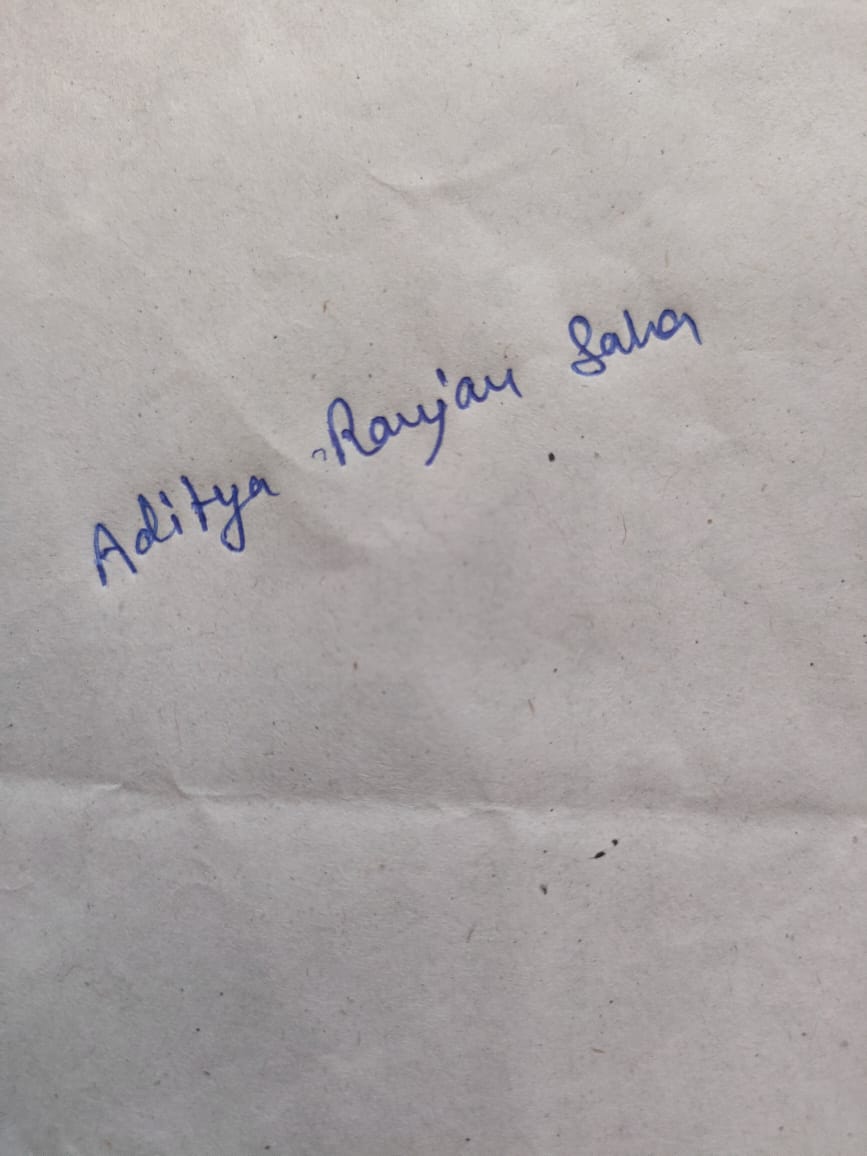 Aditya Ranjan Saha